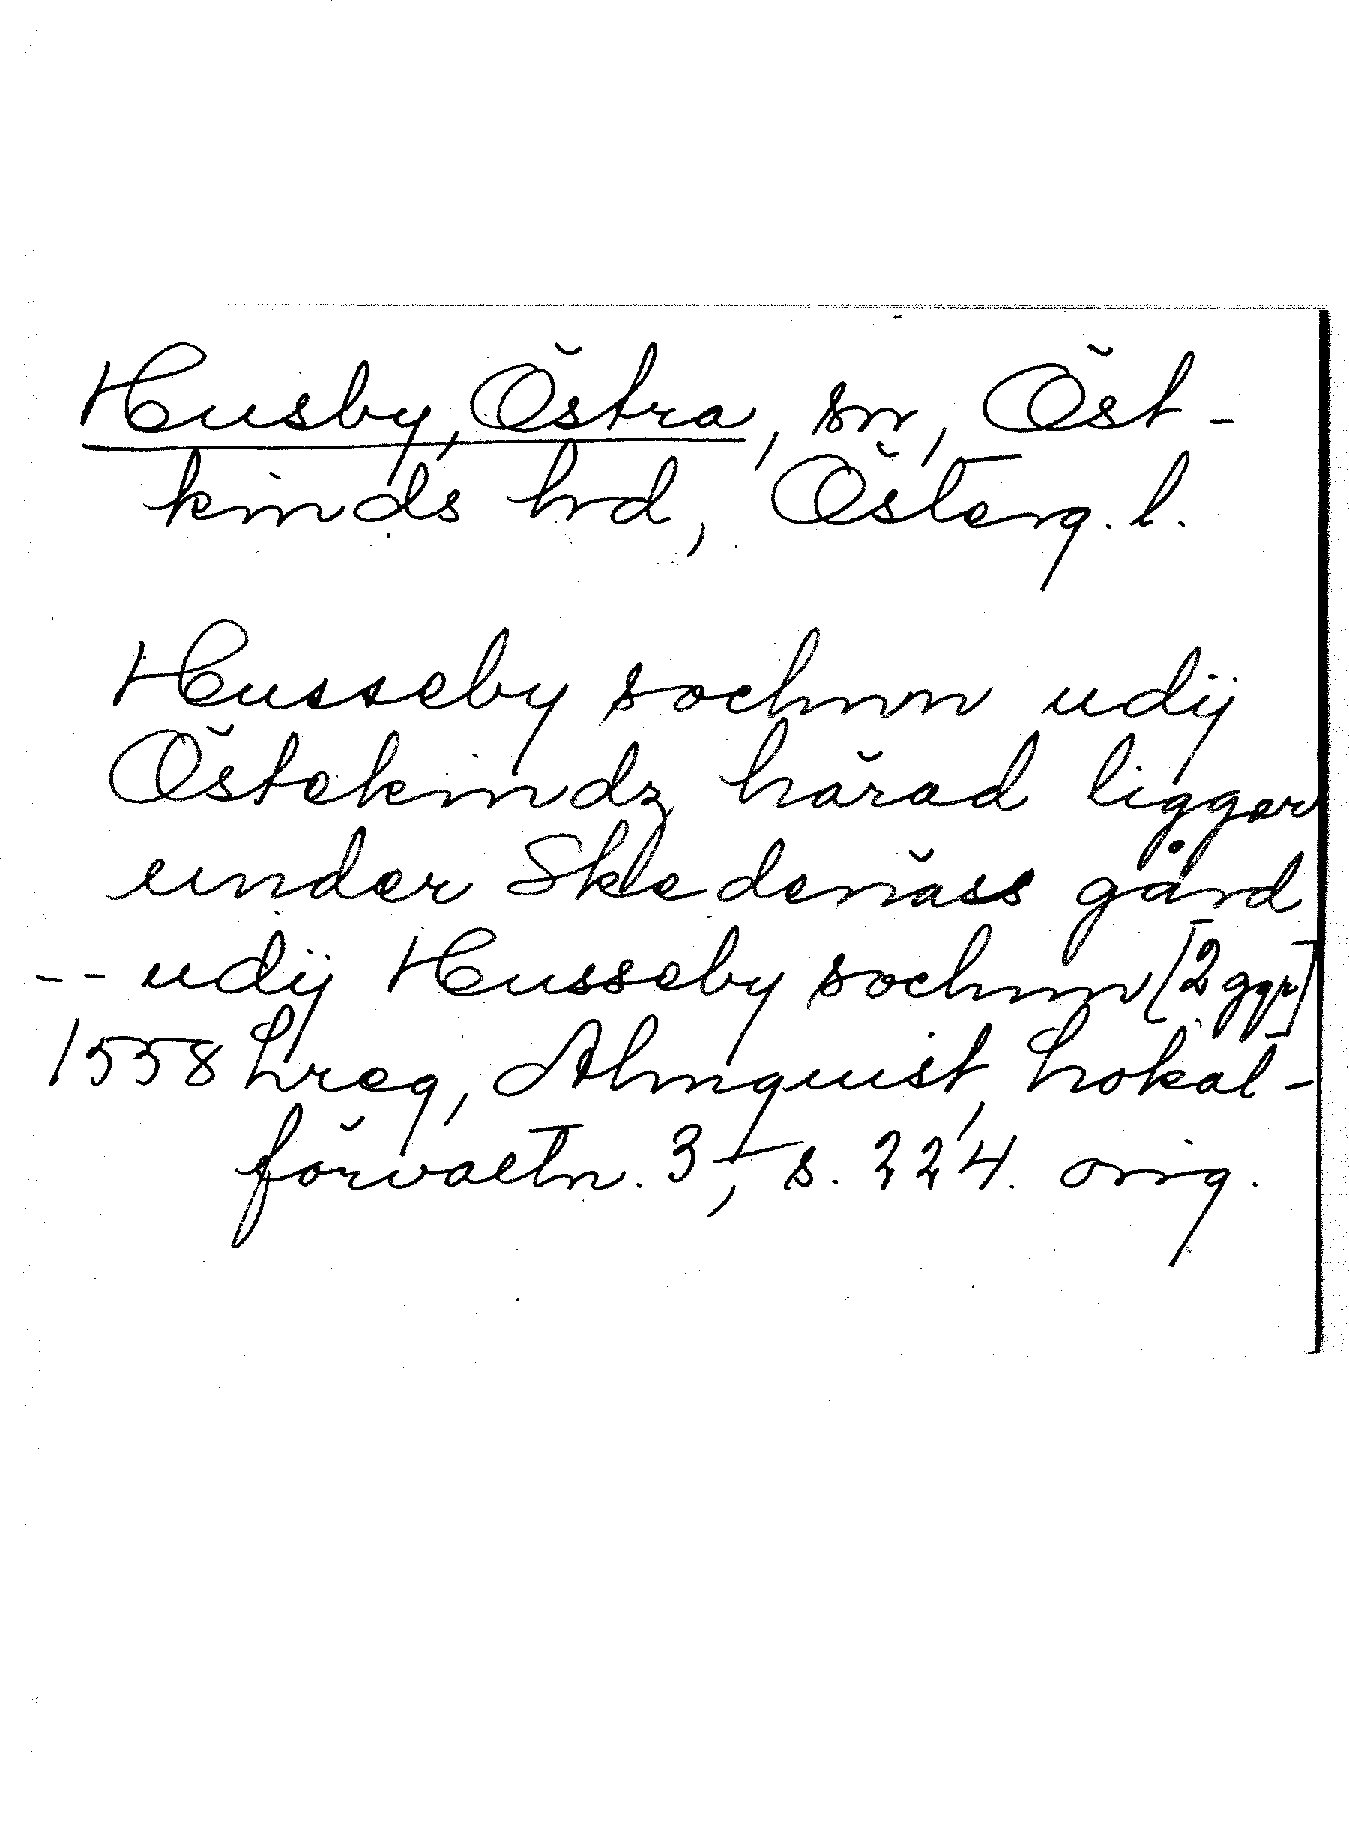 Husby, Östra, sn, Öst-
kinds hrd, Österg. l.
Husseby sochnn udij
Östekindz härad ligger
under Skedenäss gård
-- udij Husseby sochnn [2 ggr]
1558 Lreg, Almquist, Lokal-
förvaltn. 3, s. 224. orig.